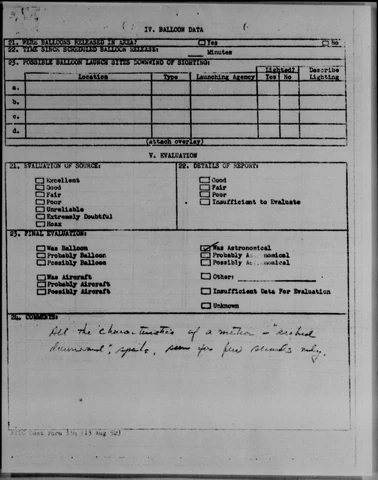 IV. BALLOON DATA
21. WERE BALLOONS RELEASED IN AREA? Yes No
22. TIME SINCE SCHEDULED BALLOON RELEASE: Minutes
23. POSSIBLE BALLOON LAUNCH SITES DOWNWIND OF SIGHTING:
Location Type Launching Agency Lighted? Yes No Describe Lighting
a.
b.
c.
d.
(attach overlay)
V. EVALUATION
21. EVALUATION OF SOURCE: 22. DETAILS OF REPORT:
Excellent Good
Good Fair
Fair Poor
Poor Insufficient to Evaluate
Unreliable
Extremely Doubtful
Hoax
23. FINAL EVALUATION:
Was Balloon Was Astronomical
Probably Balloon Probably Astronomical
Possibly Balloon Possibly Astronomical
Was Aircraft Other:
Probably Aircraft
Possibly Aircraft Insufficient Data For Evaluation
Unknown
24. COMMENTS:
All the characteristics of a meteor - "arched
downward", sparks, seen for few seconds only.
Form 19 (19 Aug 52)